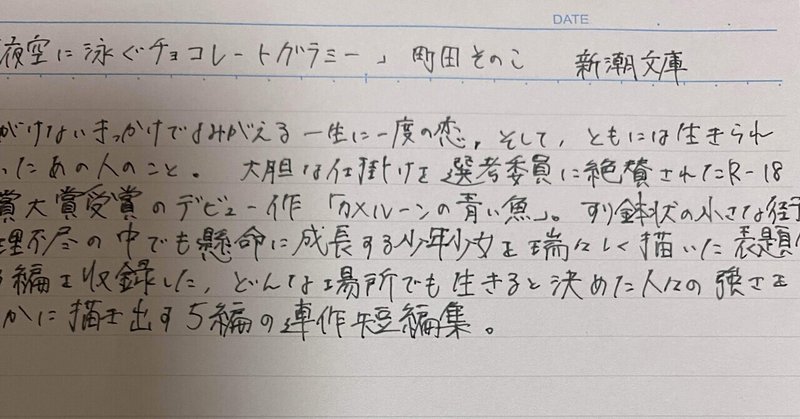 DATE
夜空に泳ぐチョコレートグラミー」 町田そのこ 新潮文庫
がけないきっかけでよみがえる一生に一度の恋、そして、ともには生きられ
ったあの人のこと。 大胆な仕掛けを選考委員に絶賛されたR-18
賞大賞受賞のデビュー作「カメルーンの青い魚」。すり鉢状の小さな
理不尽の中でも懸命に成長する少年少女を瑞々しく描いた表題
編を収録した、どんな場所でも生きると決めた人々の強さを
かに描き出す5編の連作短編集。